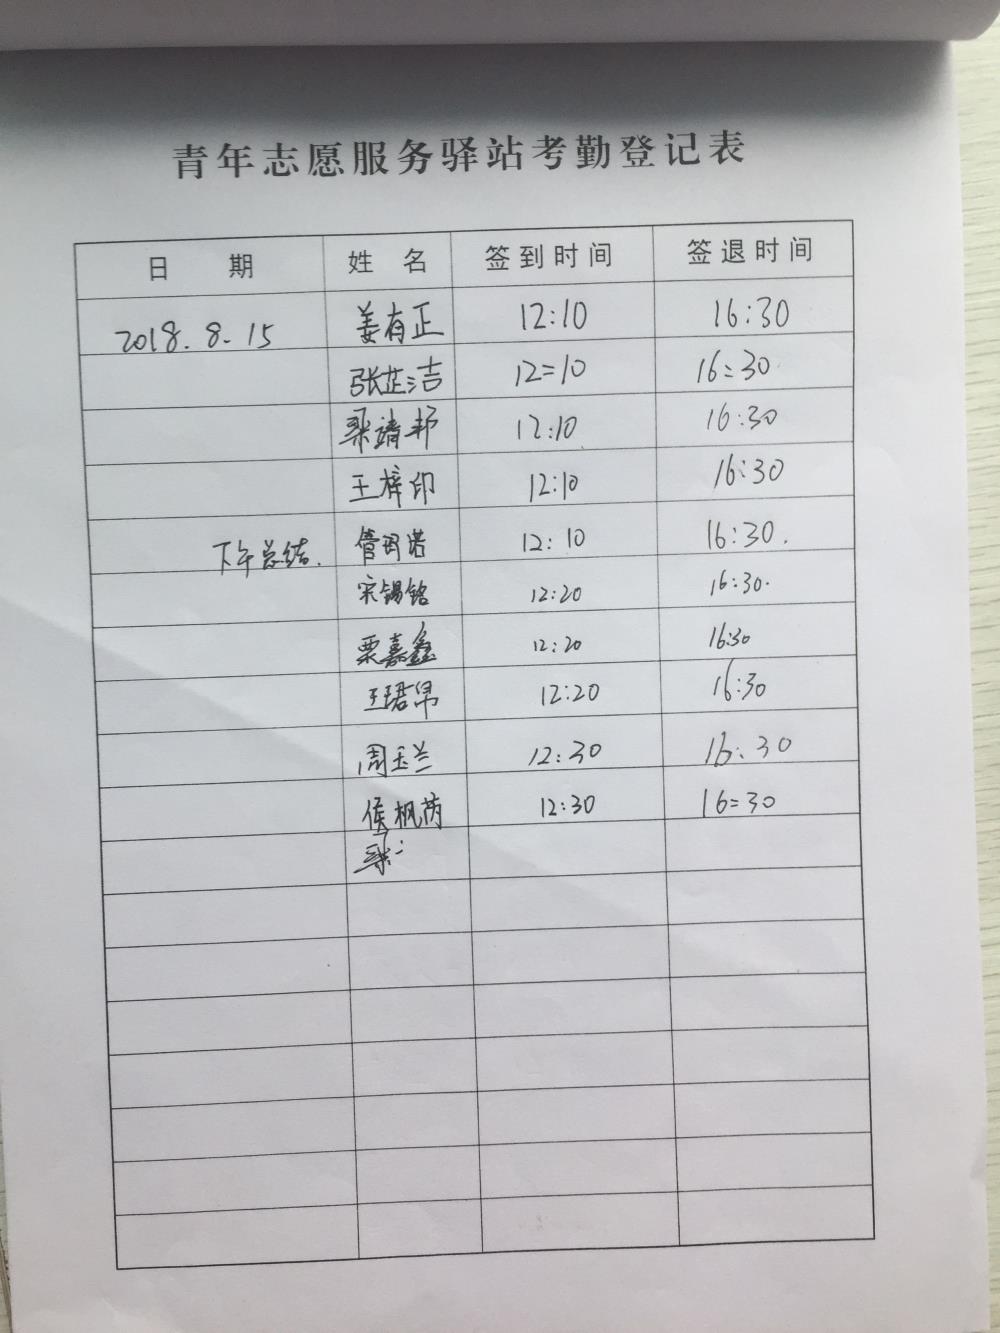 青年志愿服务驿站考勤登记表
日 期 姓 名 签到时间 签退时间
2018.8.15 姜有正 12:10 16:30
张芷洁 12:10 16:30
梁靖邦 12:10 16:30
王梓印 12:10 16:30
下午总结. 管玥诺 12:10 16:30.
宋锡铭 12:20 16:30.
栗嘉鑫 12:20 16:30
王珺帛 12:20 16:30
周玉兰 12:30 16:30
侯枫芮 12:30 16:30